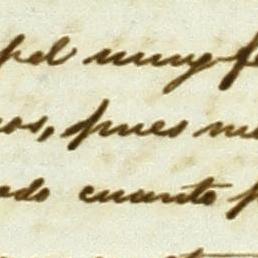 pel muy fe
os, pues me
ado cuanto p